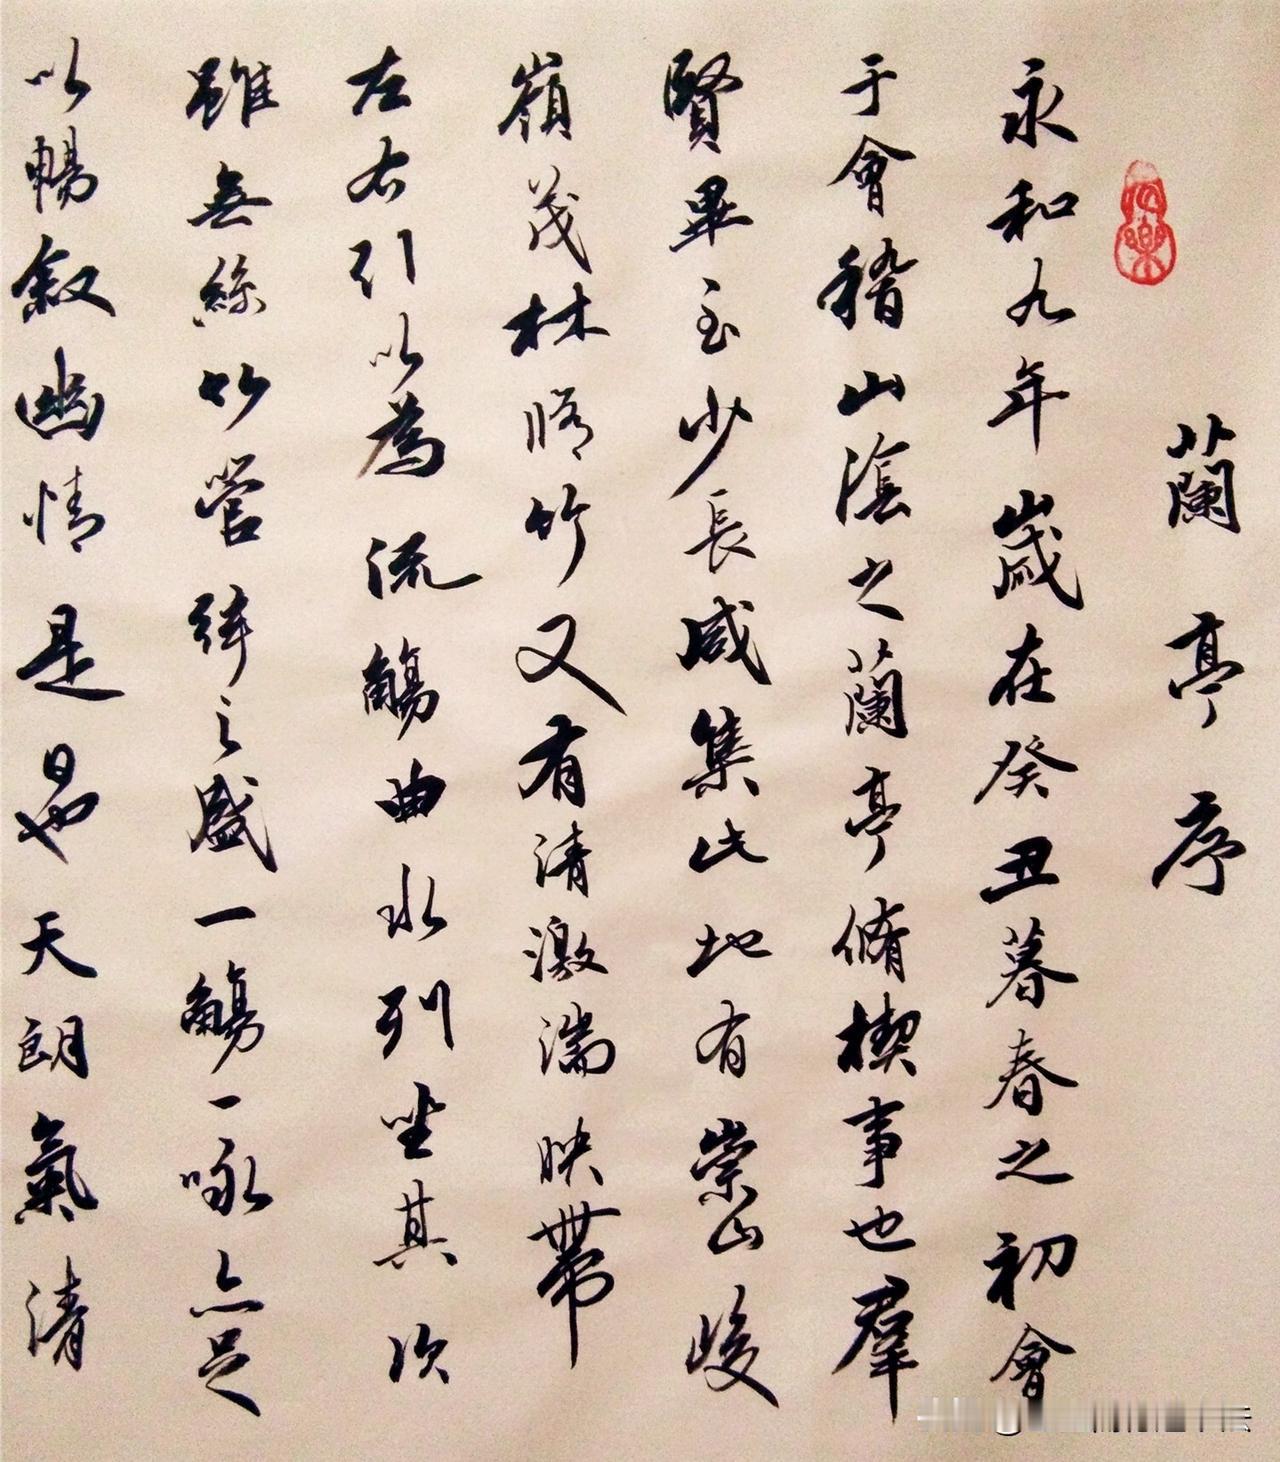 蘭亭序
永和九年歲在癸丑暮春之初會
于會稽山陰之蘭亭脩禊事也羣
賢畢至少長咸集此地有崇山峻
嶺茂林脩竹又有清激湍映帶
左右引以為流觴曲水列坐其次
雖無絲竹管絃之盛一觴一詠亦足
以暢叙幽情是日也天朗氣清